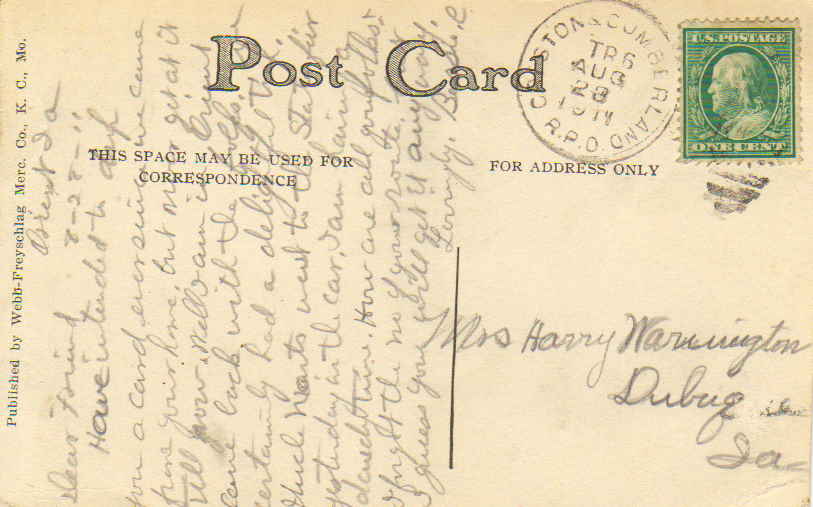 Post Card
THIS SPACE MAY BE USED FOR
CORRESPONDENCE
FOR ADDRESS ONLY
Published by Webb-Freyschlag Merc. Co., K. C., Mo.
CRESTON & CUMBERLAND
TR6
AUG
28
1911
R.P.O.
U.S. POSTAGE
ONE CENT
Orient Ia
8-28-11
Dear Friend
Have intended to drop
you a card ever since we came
from your home, but never get at it
till now. am in Orient
Came back with the folks. We
certainly had a delightful
Uncle went to the State fair
yesterday in the car. I am having a
dandy time. How are all you folks?
I forgot the no of your route, but
I guess you will get it anyway
Lovingly. Bessie R.
Mrs Harry Warnington
Dubuq
Ia-